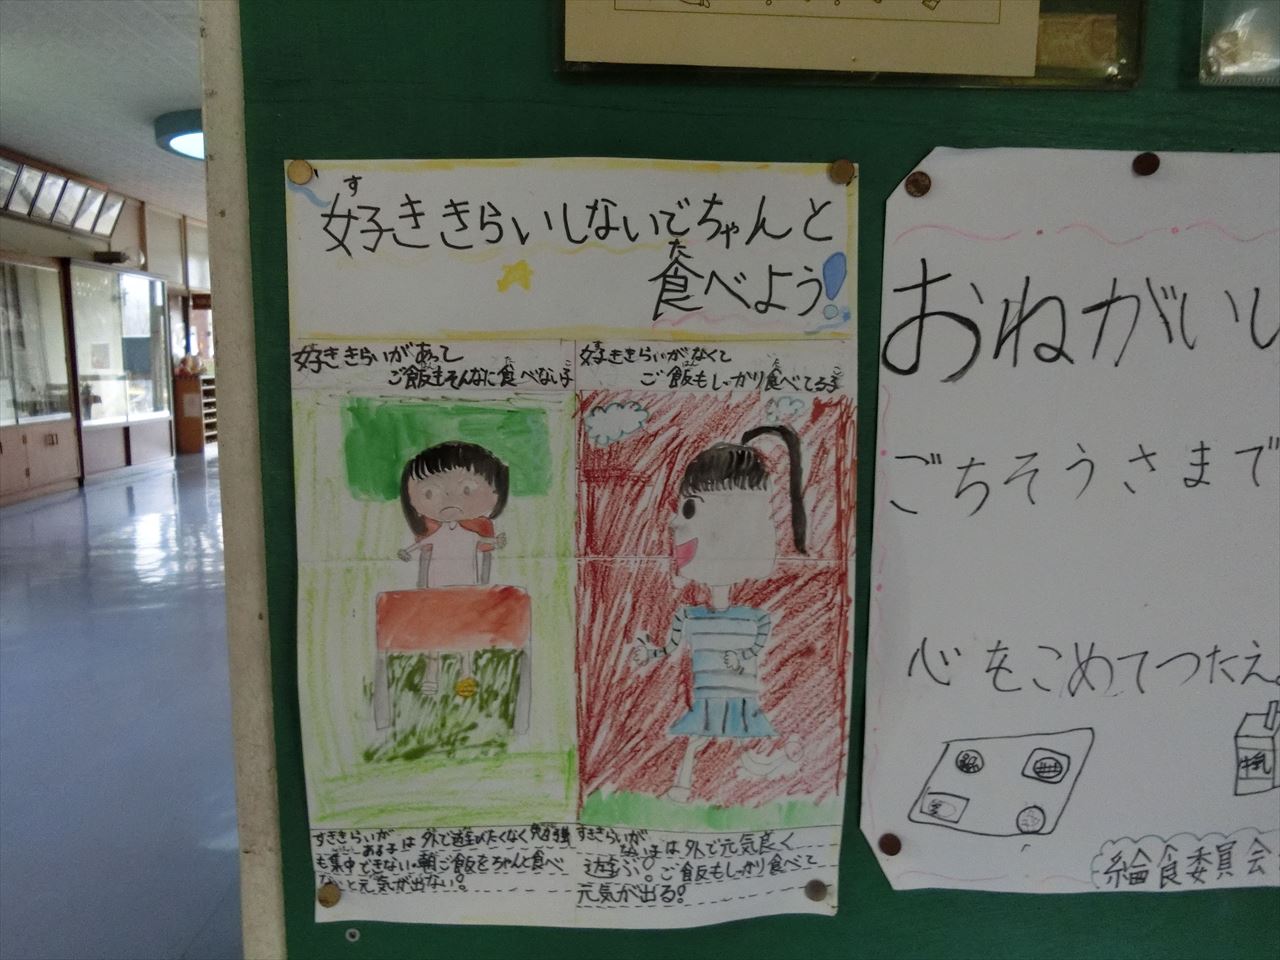 好ききらいしないでちゃんと
食べよう!
好ききらいがあって
ご飯もそんなに食べない子
好ききらいがなくて
ご飯もしっかり食べてる子
すききらいが
ある子は外で遊びたくなく勉強
も集中できない。朝ご飯をちゃんと食べ
ないと元気が出ない!
すききらいが
ない子は外で元気良く
遊ぶ!ご飯もしっかり食べて
元気が出る!
おねがいし
ごちそうさまで
心をこめてつたえ
牛乳
給食委員会